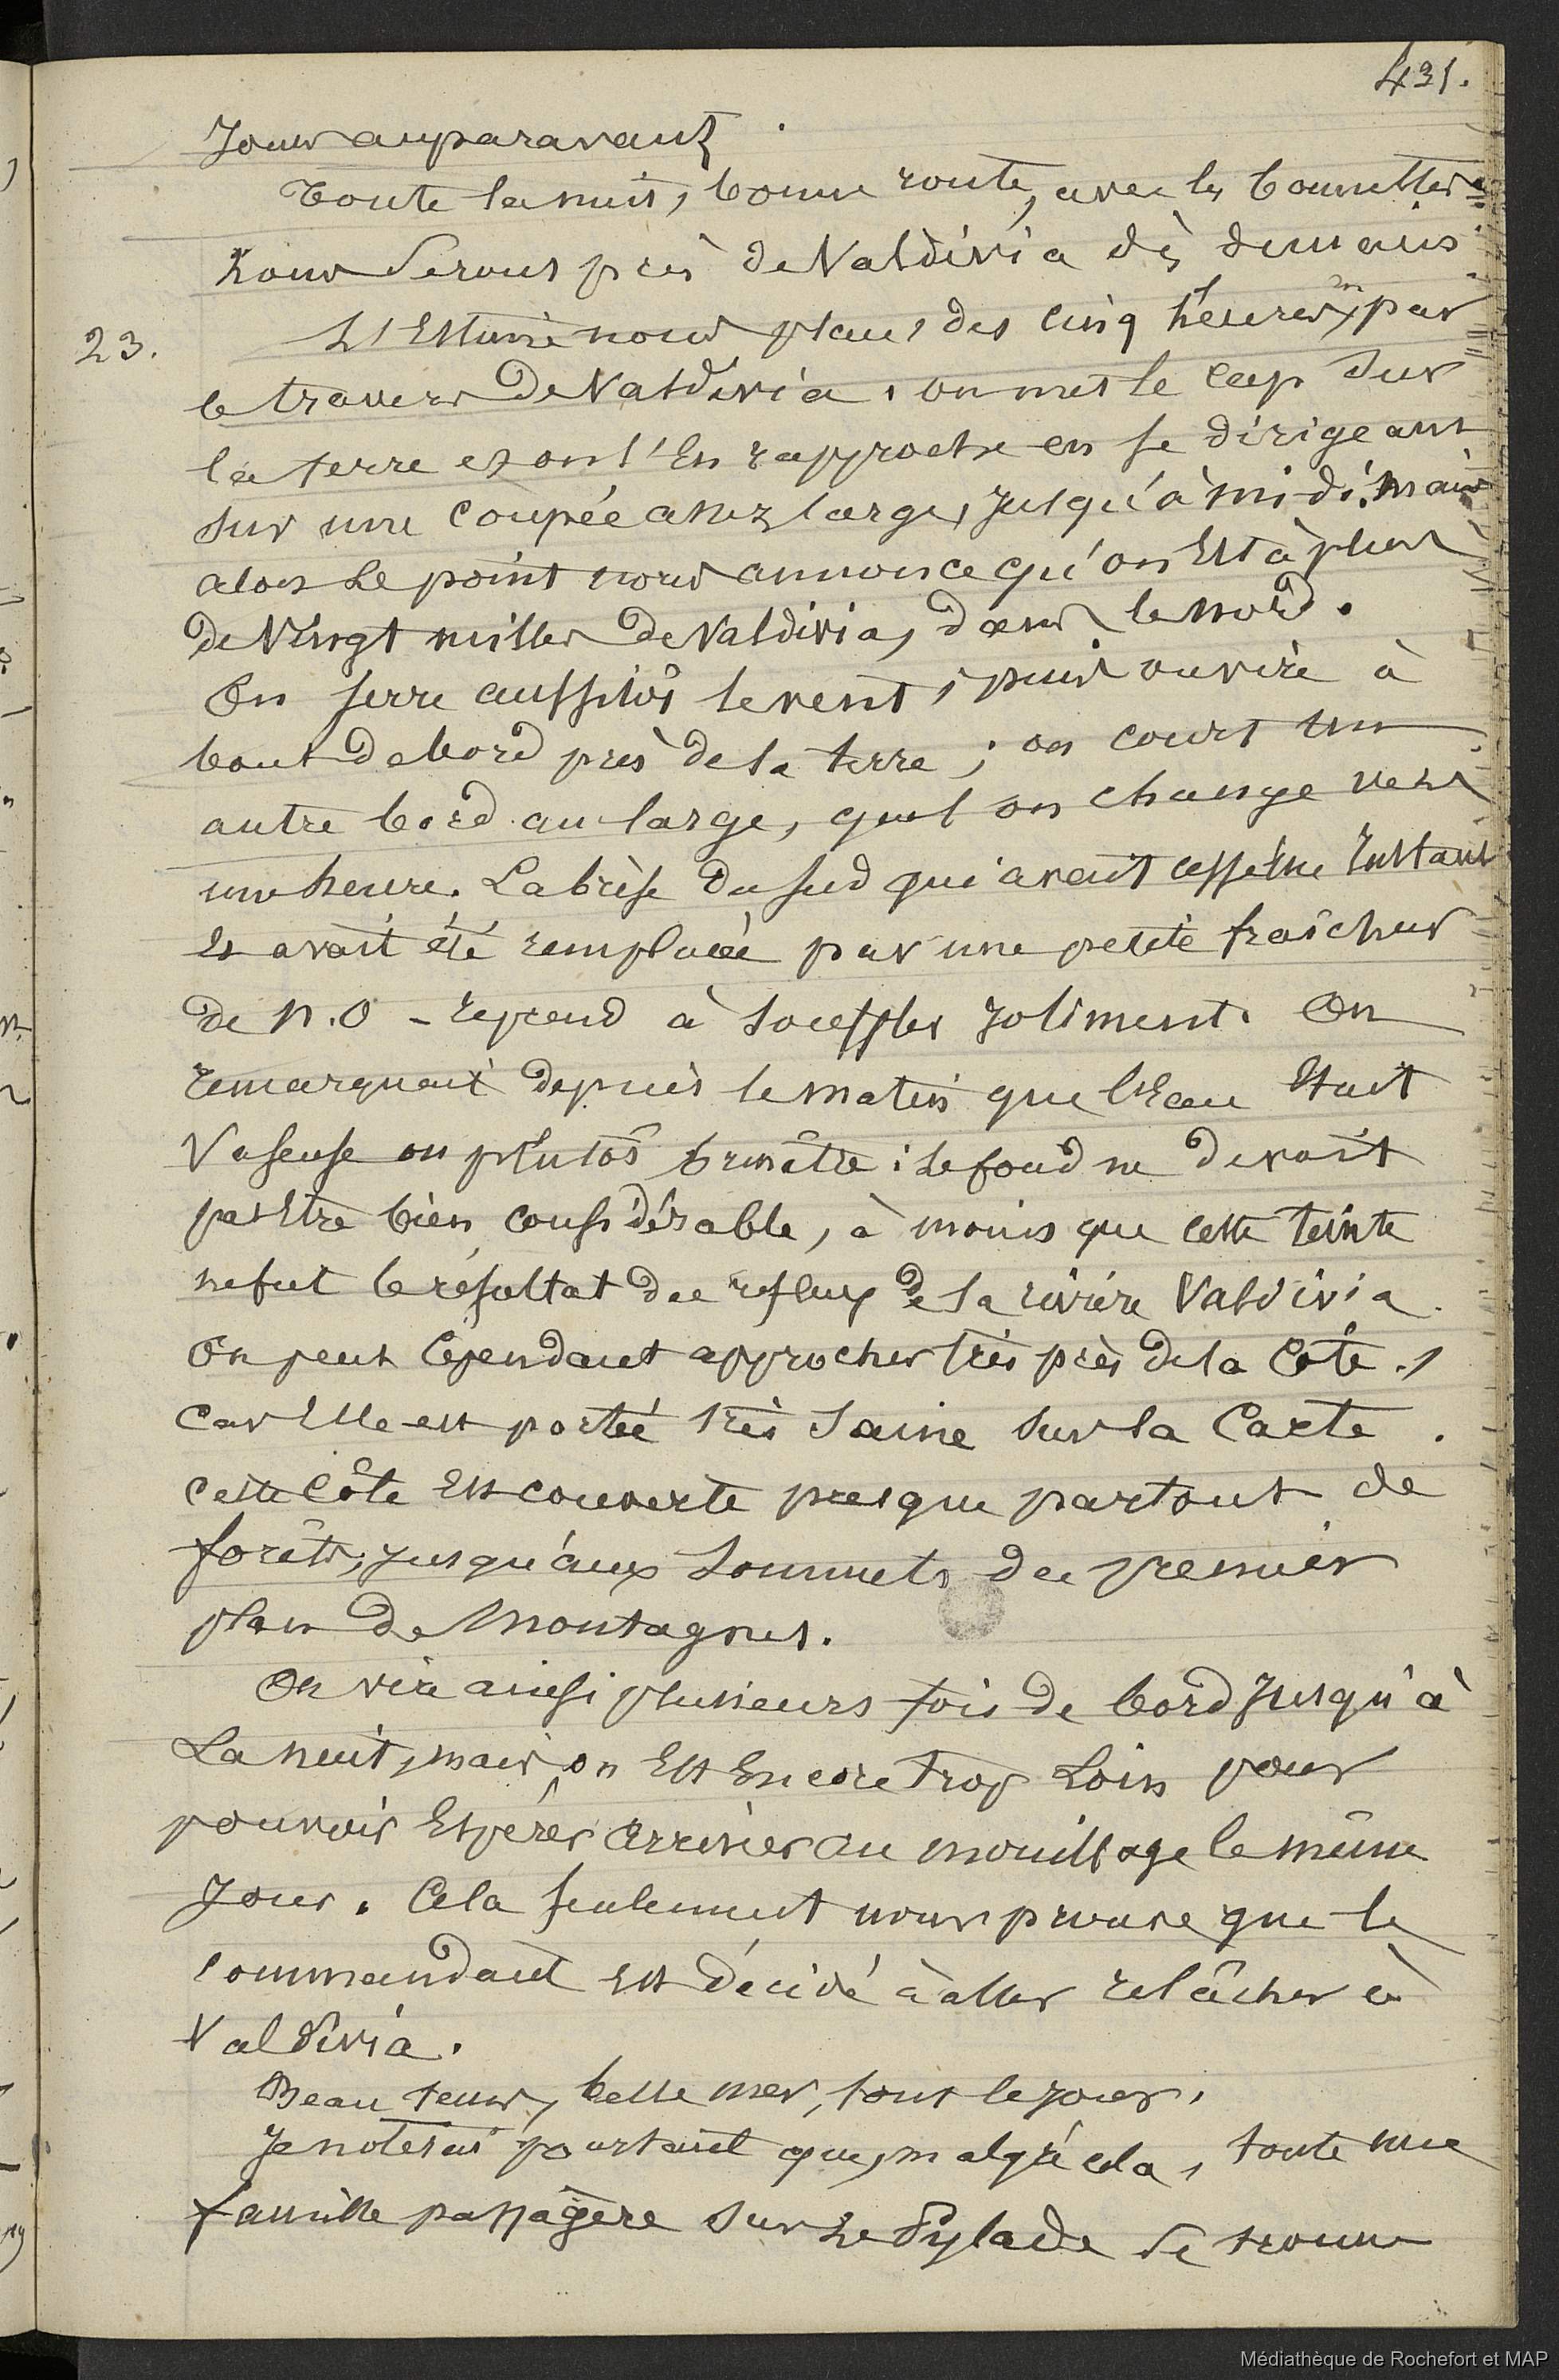 431.
Jours auparavant.
Toute la nuit, bonne route, avec les bonnettes.
Nous serons près de Valdivia dès demain.
23. L'Estime nous place, dès cinq heures, par
le travers de Valdivia, on met le cap sur
la terre et on s'en rapproche en se dirigeant
sur une coupée assez large, jusqu'à midi. mais
alors le point nous annonce qu'on est à plus
de vingt milles de Valdivia, dans le nord.
On serre aussitôt le vent, puis on vire à
bout de bord près de la terre; on court un
autre bord au large, quel on change vers
une heure. La brise du sud qui avait cessé un instant
et avait été remplacée par une petite fraîcheur
de N.O - reprend à souffler joliment. On
remarquait depuis le matin que l'eau était
vaseuse ou plutôt brunâtre: le fond ne devait
pas être bien considérable, à moins que cette teinte
ne fut le résultat du reflux de la rivière Valdivia.
On peut cependant approcher très près de la côte,
car elle est portée très saine sur la carte.
Cette côte est couverte presque partout de
forêts, jusqu'aux sommets du premier
plan de montagnes.
On vire ainsi plusieurs fois de bord jusqu'à
La nuit, mais on est encore trop loin pour
pouvoir espérer arriver au mouillage le même
jour. Cela seulement nous prouve que le
commandant est décidé à aller relâcher à
Valdivia.
Beau temps, belle mer, tout le jour.
Je noterai pourtant que, malgré cela, toute une
famille passagère sur Le Pylade se trouve
Médiathèque de Rochefort et MAP